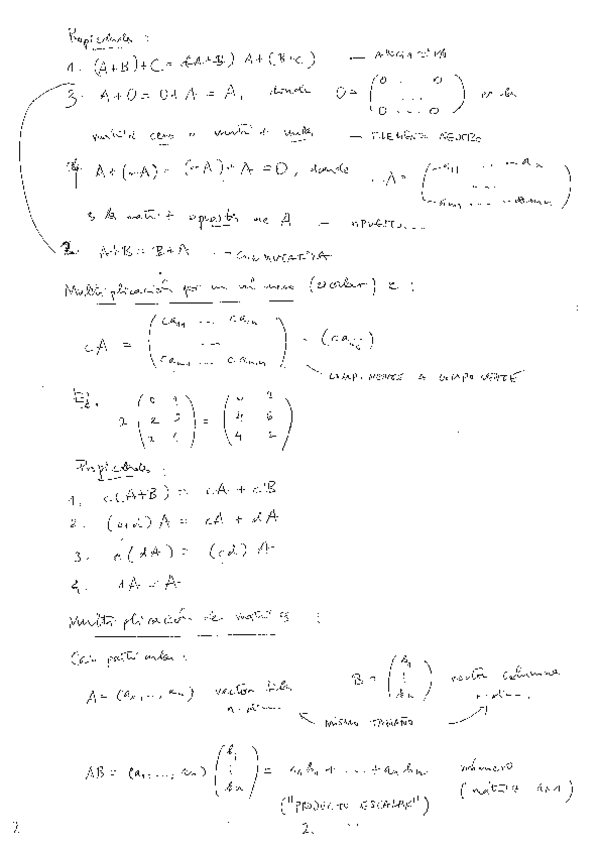 Propiedades :
1. (A+B)+C = A+(B+C) — ASOCIATIVA
3. A+0 = 0+A = A, donde 0 = (0 ... 0 ... 0 ... 0) es la
matriz cero o matriz nula — ELEMENTO NEUTRO
4. A+(-A) = (-A)+A = 0, donde -A = (-a₁₁ ... -a₁ₙ ... -aₘ₁ ... -aₘₙ)
es la matriz opuesta de A —
2. A+B = B+A — CONMUTATIVA
Multiplicación por un número (escalar) c :
cA = (ca₁₁ ... ca₁ₙ ... caₘ₁ ... caₘₙ) = (caᵢⱼ)
COMPONENTE A COMPONENTE
Ej.
Propiedades :
1. c(A+B) = cA + cB
2. (c+d) A = cA + dA
3. c(dA) = (cd) A
4. 1A = A
Multiplicación de matrices :
Caso particular :
A = (a₁, ..., aₙ) vector fila B = (b₁ ⋮ bₙ) vector columna
MISMO TAMAÑO
AB = (a₁, ..., aₙ) (b₁ ⋮ bₙ) = a₁b₁ + ... + aₙbₙ número
("PRODUCTO ESCALAR") (matriz 1x1)
2 2.